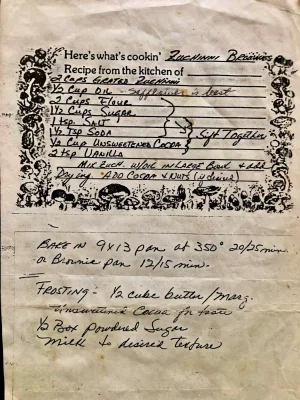 Here's what's cookin' Zuchinni Brownies
Recipe from the kitchen of
2 Cups Grated Zuchinni
1/2 Cup Oil - Safflower is best
2 Cups Flour
1 1/2 Cups Sugar
1 tsp. Salt
1 1/2 tsp Soda
Sift Together
1/2 Cup Unsweetened Cocoa
2 tsp Vanilla
Mix Zuch. w/oil in Large Bowl + add
Dry ing. Add Cocoa + Nuts (if desired)
Bake in 9x13 pan at 350° 20/25 min.
or Brownie pan 12/15 min.
Frosting: 1/2 cube butter/marg.
Unsweetened Cocoa for taste
1/2 Box Powdered Sugar
Milk to desired texture